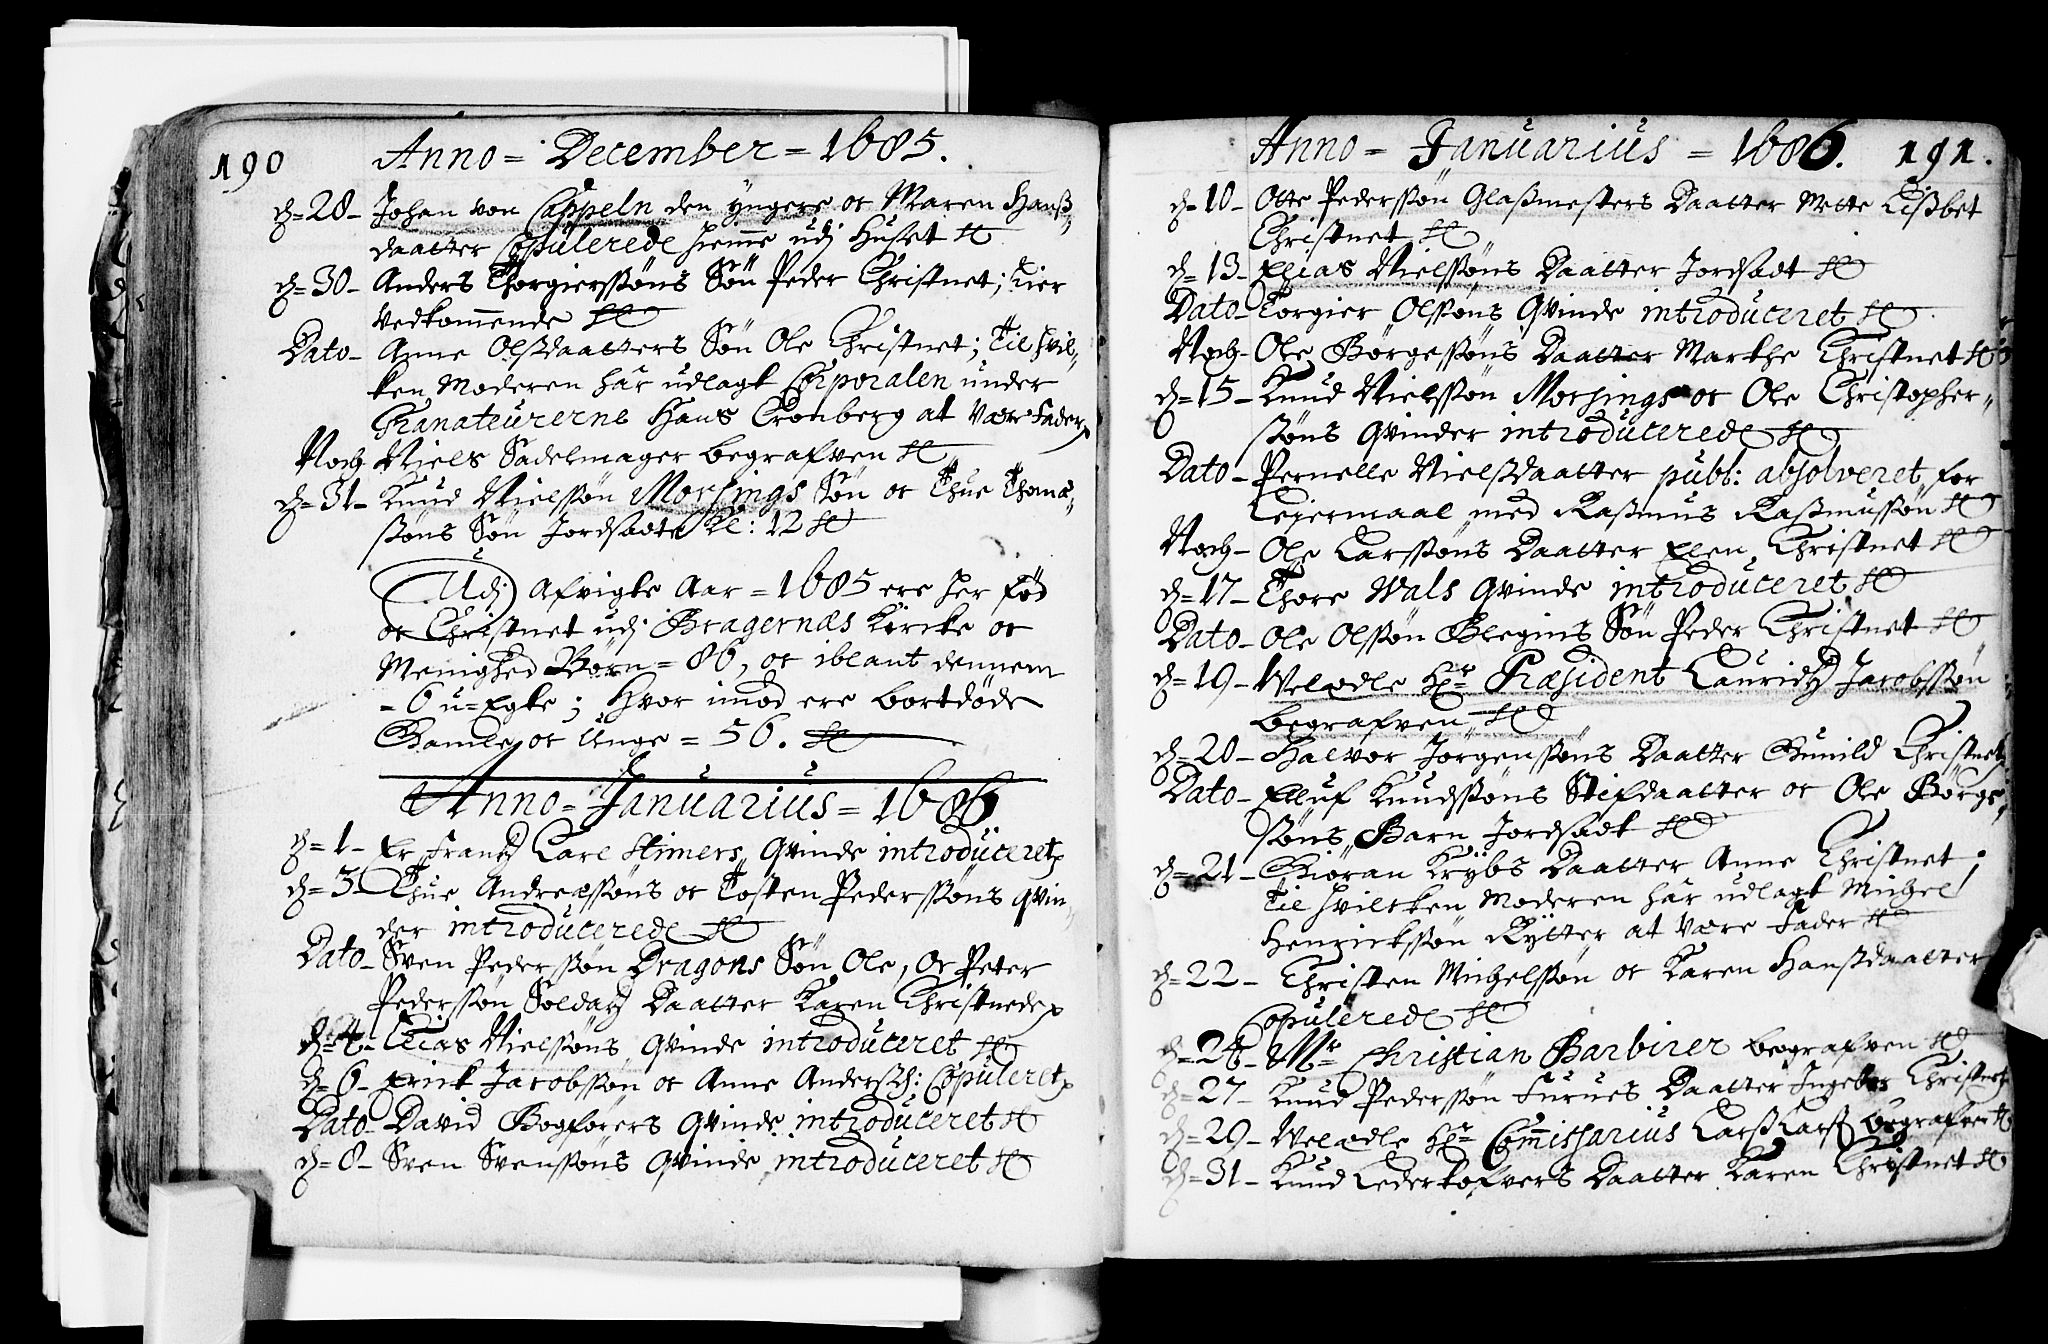 190
Anno = December = 1685.
d = 28 - Johan von Cappeln den yngere oc Maren Hanß
daatter Copulerede hiemme udj Huset
d = 30 - Anders Thorgierssøns Søn Peder Christnet; Tier
vedkommende
Dato - Anne Olsdaatters Søn Ole Christnet; Til hvil-
ken Moderen har udlagt Corporalen under
Granateurerne Hans Cronberg at være Fader
Noch Niels Sadelmager begrafven
d = 31 - Knud Nielssøn Morsings Søn oc Thue Thomæ-
søns Søn Jordsadte Kl: 12
Udj afvigte Aar = 1685 ere her fød
oc Christnet udj Bragernæs Kircke oc
Menighed Børn = 86, oc iblant dennem
= 6 u-Egte; Hvor imod ere bortdøde
Gamle oc Unge = 56.
Anno = Januarius = 1686
d = 1 - Er Frandz Carl Stimers Qvinde introduceret
d = 3 Thue Andreæssøns oc Tosten Pederssøns Qvin-
der introducerede
Dato - Sven Pederssøn Dragons Søn Ole, Oc Peter
Pederssøn Soldatz Daatter Karen Christnede
d = 4 - Elias Nielssøns Qvinde introduceret
d = 6 - Erick Jacobssøn oc Anne Andersd: Copuleret
Dato - David Bogførers Qvinde introduceret
d = 8 - Sven Svenssøns Qvinde introduceret
Anno = Januarius = 1686. 191.
d = 10 - Otte Pederssøn Glasmesters Daatter Mette Lisbet
Christnet
d = 13 - Elias Nielssøns Daatter Jordsadt
Dato - Torgier Olssøns Qvinde introduceret
Noch - Ole Børgessøns Daatter Marthe Christnet
d = 15 - Knud Nielssøn Morsings oc Ole Christopher-
søns Qvinder introducerede
Dato - Pernelle Nielsdaatter publ: absolveret for
Leiermaal med Rasmus Rasmussøn
Noch - Ole Larssøns Daatter Elen Christnet
d = 17 - Thore Wals Qvinde introduceret
Dato - Ole Olssøn Blegins Søn Peder Christnet
d = 19 - Velædle Hr Præsident Lauridz Jacobssøn
begrafven
d = 20 - Halvor Jørgenssøns Daatter Gunild Christnet
Dato - Elluf Knudssøns Stifdaatter oc Ole Børge-
søns Barn Jordsadt
d = 21 - Giøran Krybs Daatter Anne Christnet
Til hvilcken Moderen har udlagt Michel
Henrickssøn Rytter at være Fader
d = 22 - Christen Michelssøn oc Karen Hansdaatter
Copulerede
d = 26 - Mr Christian Barbirer begrafven
d = 27 - Knud Pederssøn Furues Daatter Ingebor Christnet
d = 29 - Velædle Hr Commissarius Lars Larss begrafven
d = 31 - Knud Lederkofvers Daatter Karen Christnet